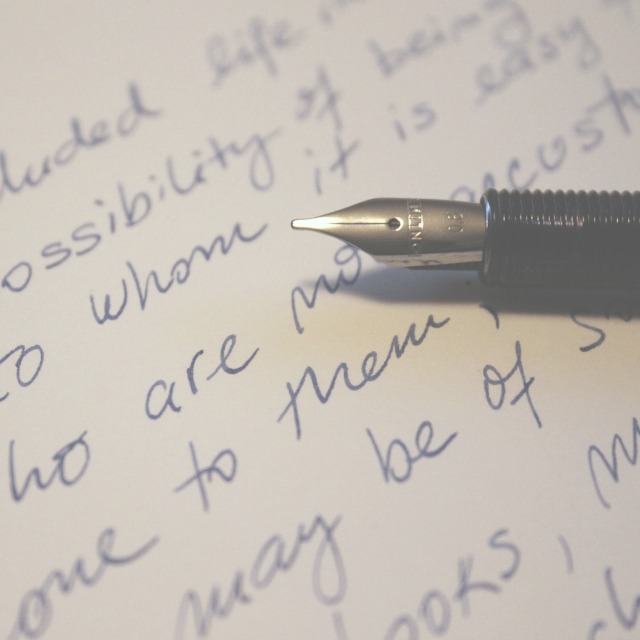 luded life in
ossibility of being
o whom it is easy
ho are no accusto
one to them,
may be of s
ooks,